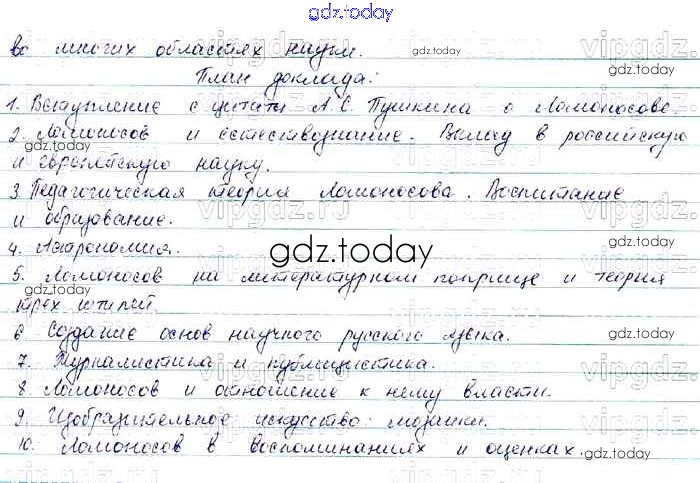 gdz.today
во многих областях науки.
gdz.today
План доклада:
gdz.today
1. Вступление с цитаты А.С. Пушкина о Ломоносове.
2. Ломоносов и естествознание. Вклад в российскую
gdz.today
и европейскую науку.
gdz.today
3. Педагогическая теория Ломоносова. Воспитание
и образование.
vipgdz.ru
gdz.today
4. Астрономия.
gdz.today
5. Ломоносов на литературном поприще и теория
gdz.today
трех штилей
gdz.today
6 Создание основ научного русского языка.
gdz.today
7. Журналистика и публицистика.
vipgdz.ru
8. Ломоносов и отношение к нему власти.
gdz.today
9. Изобразительное искусство: мозаики.
10. Ломоносов в воспоминаниях и оценках.
gdz.today